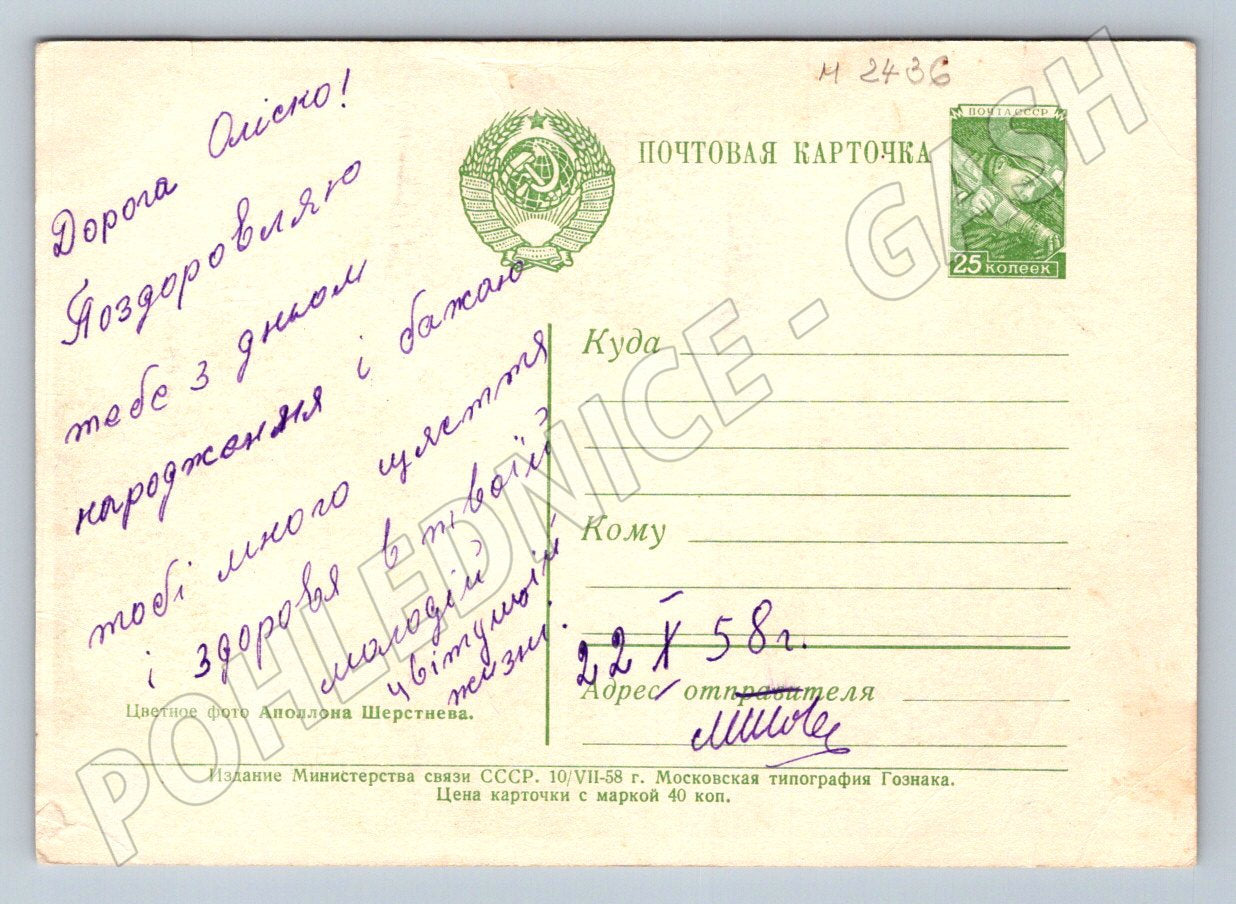 м 2436
ПОЧТА СССР
25 копеек
ПОЧТОВАЯ КАРТОЧКА
Дорога Олісно!
Поздоровляю
тебе з дньом
народження і бажаю
тобі много щястя
і здоровя в твоїй
молодій
цвітущой
жизні.
Куда
Кому
22 X 58 г.
Адрес отправителя
Цветное фото Аполлона Шерстнева.
Издание Министерства связи СССР. 10/VII-58 г. Московская типография Гознака.
Цена карточки с маркой 40 коп.
POHLEDNICE - GASH